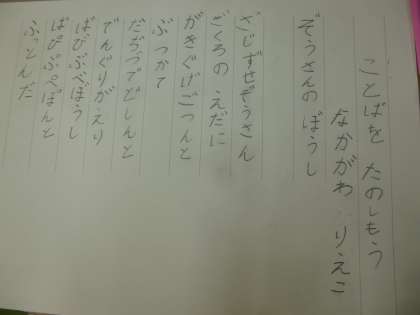 ことばを たのしもう
なかがわ りえこ
ぞうさんの ぼうし
ざじずぜぞうさん
ざくろの えだに
がぎぐげごつんと
ぶつかて
だぢづでどしんと
でんぐりがえり
ばびぶべぼうし
ぱぴぷぺぽんと
ふっとんだ